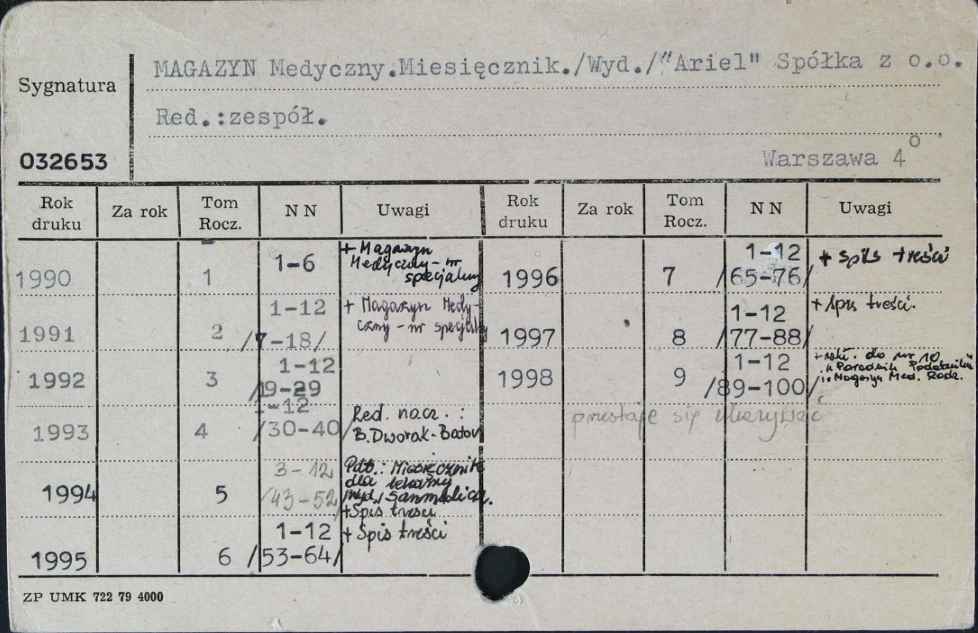 MAGAZYN Medyczny.Miesięcznik./Wyd./"Ariel" Spółka z o.o.
Sygnatura
Red.:zespół.
032653
Warszawa 4°
Rok druku Za rok Tom Rocz. NN Uwagi Rok druku Za rok Tom Rocz. NN Uwagi
1990 1 1-6 + Magazyn Medyczny - nr specjalny
1991 2 1-12 /7-18/ + Magazyn Medyczny - nr specjalny
1992 3 1-12 /19-29
1993 4 1-12 /30-40/ Red. nacz.: B.Dworak-
1994 5 3-12 /43-52/ Podt.: Miesięcznik dla lekarzy Wyd. Sanmedica. + Spis treści
1995 6 1-12 /53-64/ + Spis treści
1996 7 1-12 /65-76/ + spis treści
1997 8 1-12 /77-88/ + spis treści.
1998 9 1-12 /89-100/ do nr 10 Poradnik Magazyn Med. Rodz.
przestaje się ukazywać
ZP UMK 722 79 4000